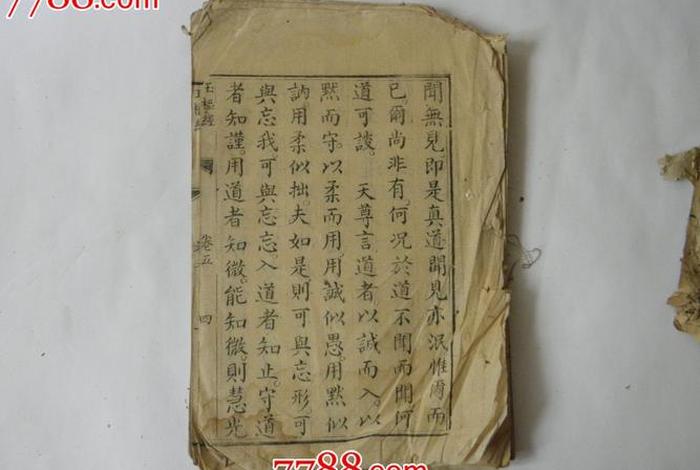 7788.com
聞無見。即是真道。聞見亦泯。惟爾而
已。爾尚非有。何況於道不聞而聞何
道可談。 天尊言道者以誠而入。以
黙而守。以柔而用。用誠似愚。用黙似
訥。用柔似拙。夫如是。則可與忘形。可
與忘我。可與忘忘。入道者知止。守道
者知謹。用道者知微。能知微。則慧光
玉樞經 卷五 四
7788.com